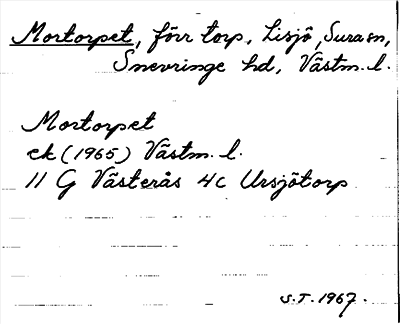 Mortorpet, förr torp, Lisjö, Sura sn,
Snevringe hd, Västm. l.
Mortorpet
ek (1965) Västm. l.
11 G Västerås 4c Ursjötorp
S.T. 1967.